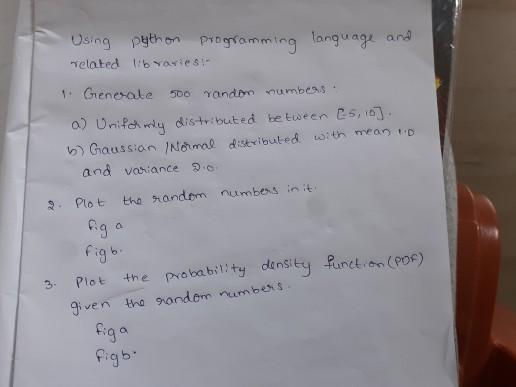 Using python programming language and
related libraries:-
1. Generate 500 random numbers.
a) Uniformly distributed between [-5, 10].
b) Gaussian /Normal distributed with mean 1.0
and variance 2.0.
2. Plot the random numbers in it.
fig a
fig b.
3. Plot the probability density function (PDF)
given the random numbers.
fig a
fig b.